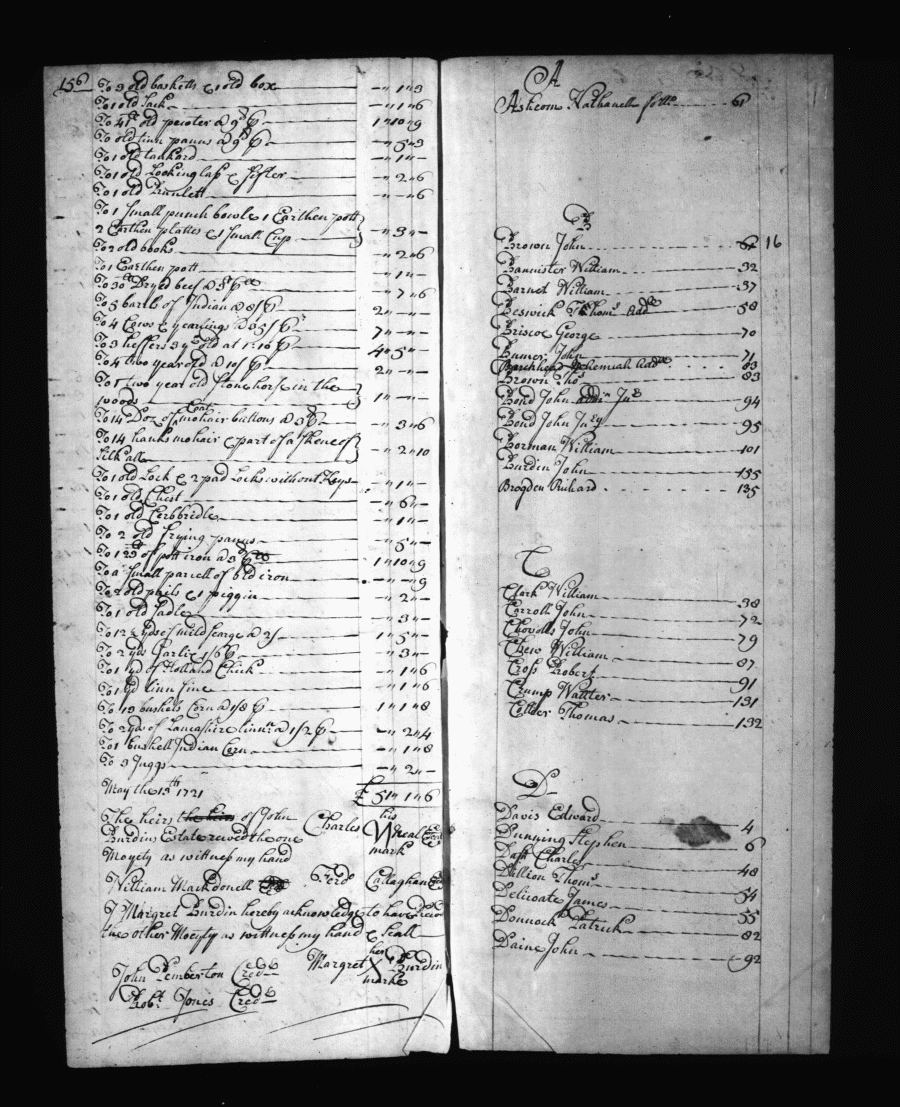 156
To 3 old basketts & 1 old box — - " 1 " 3
To 1 old Sack — - " 1 " 6
To 41 lb old pewter @ 9d p — 1 " 10 " 9
To old tinn panns @ 9d p — - " 5 " 3
To 1 old tankard — - " 1 " -
To 1 old Looking glass & Sifter — - " 2 " 6
To 1 old Runlett — - " - " 6
To 1 Small punch bowle 1 Earthen pott
2 Earthen plattes & 1 Small Cup — - " 3 " -
To 2 old books — - " 2 " 6
To 1 Earthen pott — - " 1 " -
To 30 lb Dryed beef @ — - " 7 " 6
To 5 barls of Indian @ 8/ p — 2 " - " -
To 4 Cows & yearlings @ 35/ p — 7 " - " -
To 3 heffers 3 yrs old at 1:16 p — 4 " 5 " -
To 4 two year old @ 10/ p — 2 " - " -
To 1 two year old Stone horse in the
woods — 1 " - " -
To 14 Doz of Coat mohair buttons @ 3d p — - " 3 " 6
To 14 hanks mohair & part of a Skene of
Silk all — - " 2 " 10
To 1 old Lock & 2 pad Locks without Keys — - " 1 " -
To 1 old Chest — - " 6 " -
To 1 old Curbbridle — - " 1 " -
To 2 old frying panns — - " 5 " -
To 123 lb of pott iron @ 3d p — 1 " 10 " 9
To a Small parcell of old iron — - " - " 9
To 2 old phils & 1 piggin — - " 2 " -
To 1 old Sadle — - " 3 " -
To 12 ½ yds of mild Searge @ 2/ — 1 " 5 " -
To 2 yds Garlic 1/6 p — - " 3 " -
To 1 yd of Holland Chick — - " 1 " 6
To 1 yd linn fine — - " 1 " 6
To 13 bushels Corn @ 1/8 p — 1 " 1 " 8
To 2 yds of Lancashire linn @ 1/2 p — - " 2 " 4
To 1 bushell Indian Corn — - " 1 " 8
To 3 Juggs — - " 2 " -
May the 13th 1721
£ 51 " 14 " 6
The heirs the heirs of John
Burdin Estate recved the one
Moyety as wittness my hand
Charles his Neal
mark
William Mackdonell
Ferd Callaghan
I Margret Burdin hereby acknowledge to have recvd
the other Moeyty as wittness my hand & Seall
Margret her X Burdin
marke
John Pemberton Credr
Robt Jones Credr
A
Ashcom Nathanell 61
B
Brown John 16
Bannister William 32
Barnet William 37
Beswick Thoms Add 58
Briscoe George 70
Bumer John 71
Burckhead Nehemiah Add 83
Brown Thos 83
Bond John Junr 94
Bond John Jury 95
Borman William 101
Burdin John 155
Brogden Richard 135
C
Clark William 38
Carroll John 72
Chovells John 79
Chew William 87
Cross Robert 91
Crump Wallter 131
Collder Thomas 132
D
Davis Edward 4
Dunning Stephen 6
Dasft Charles 48
Dillion Thoms 54
Delicoate James 55
Donnock Patrick 82
Daine John 92